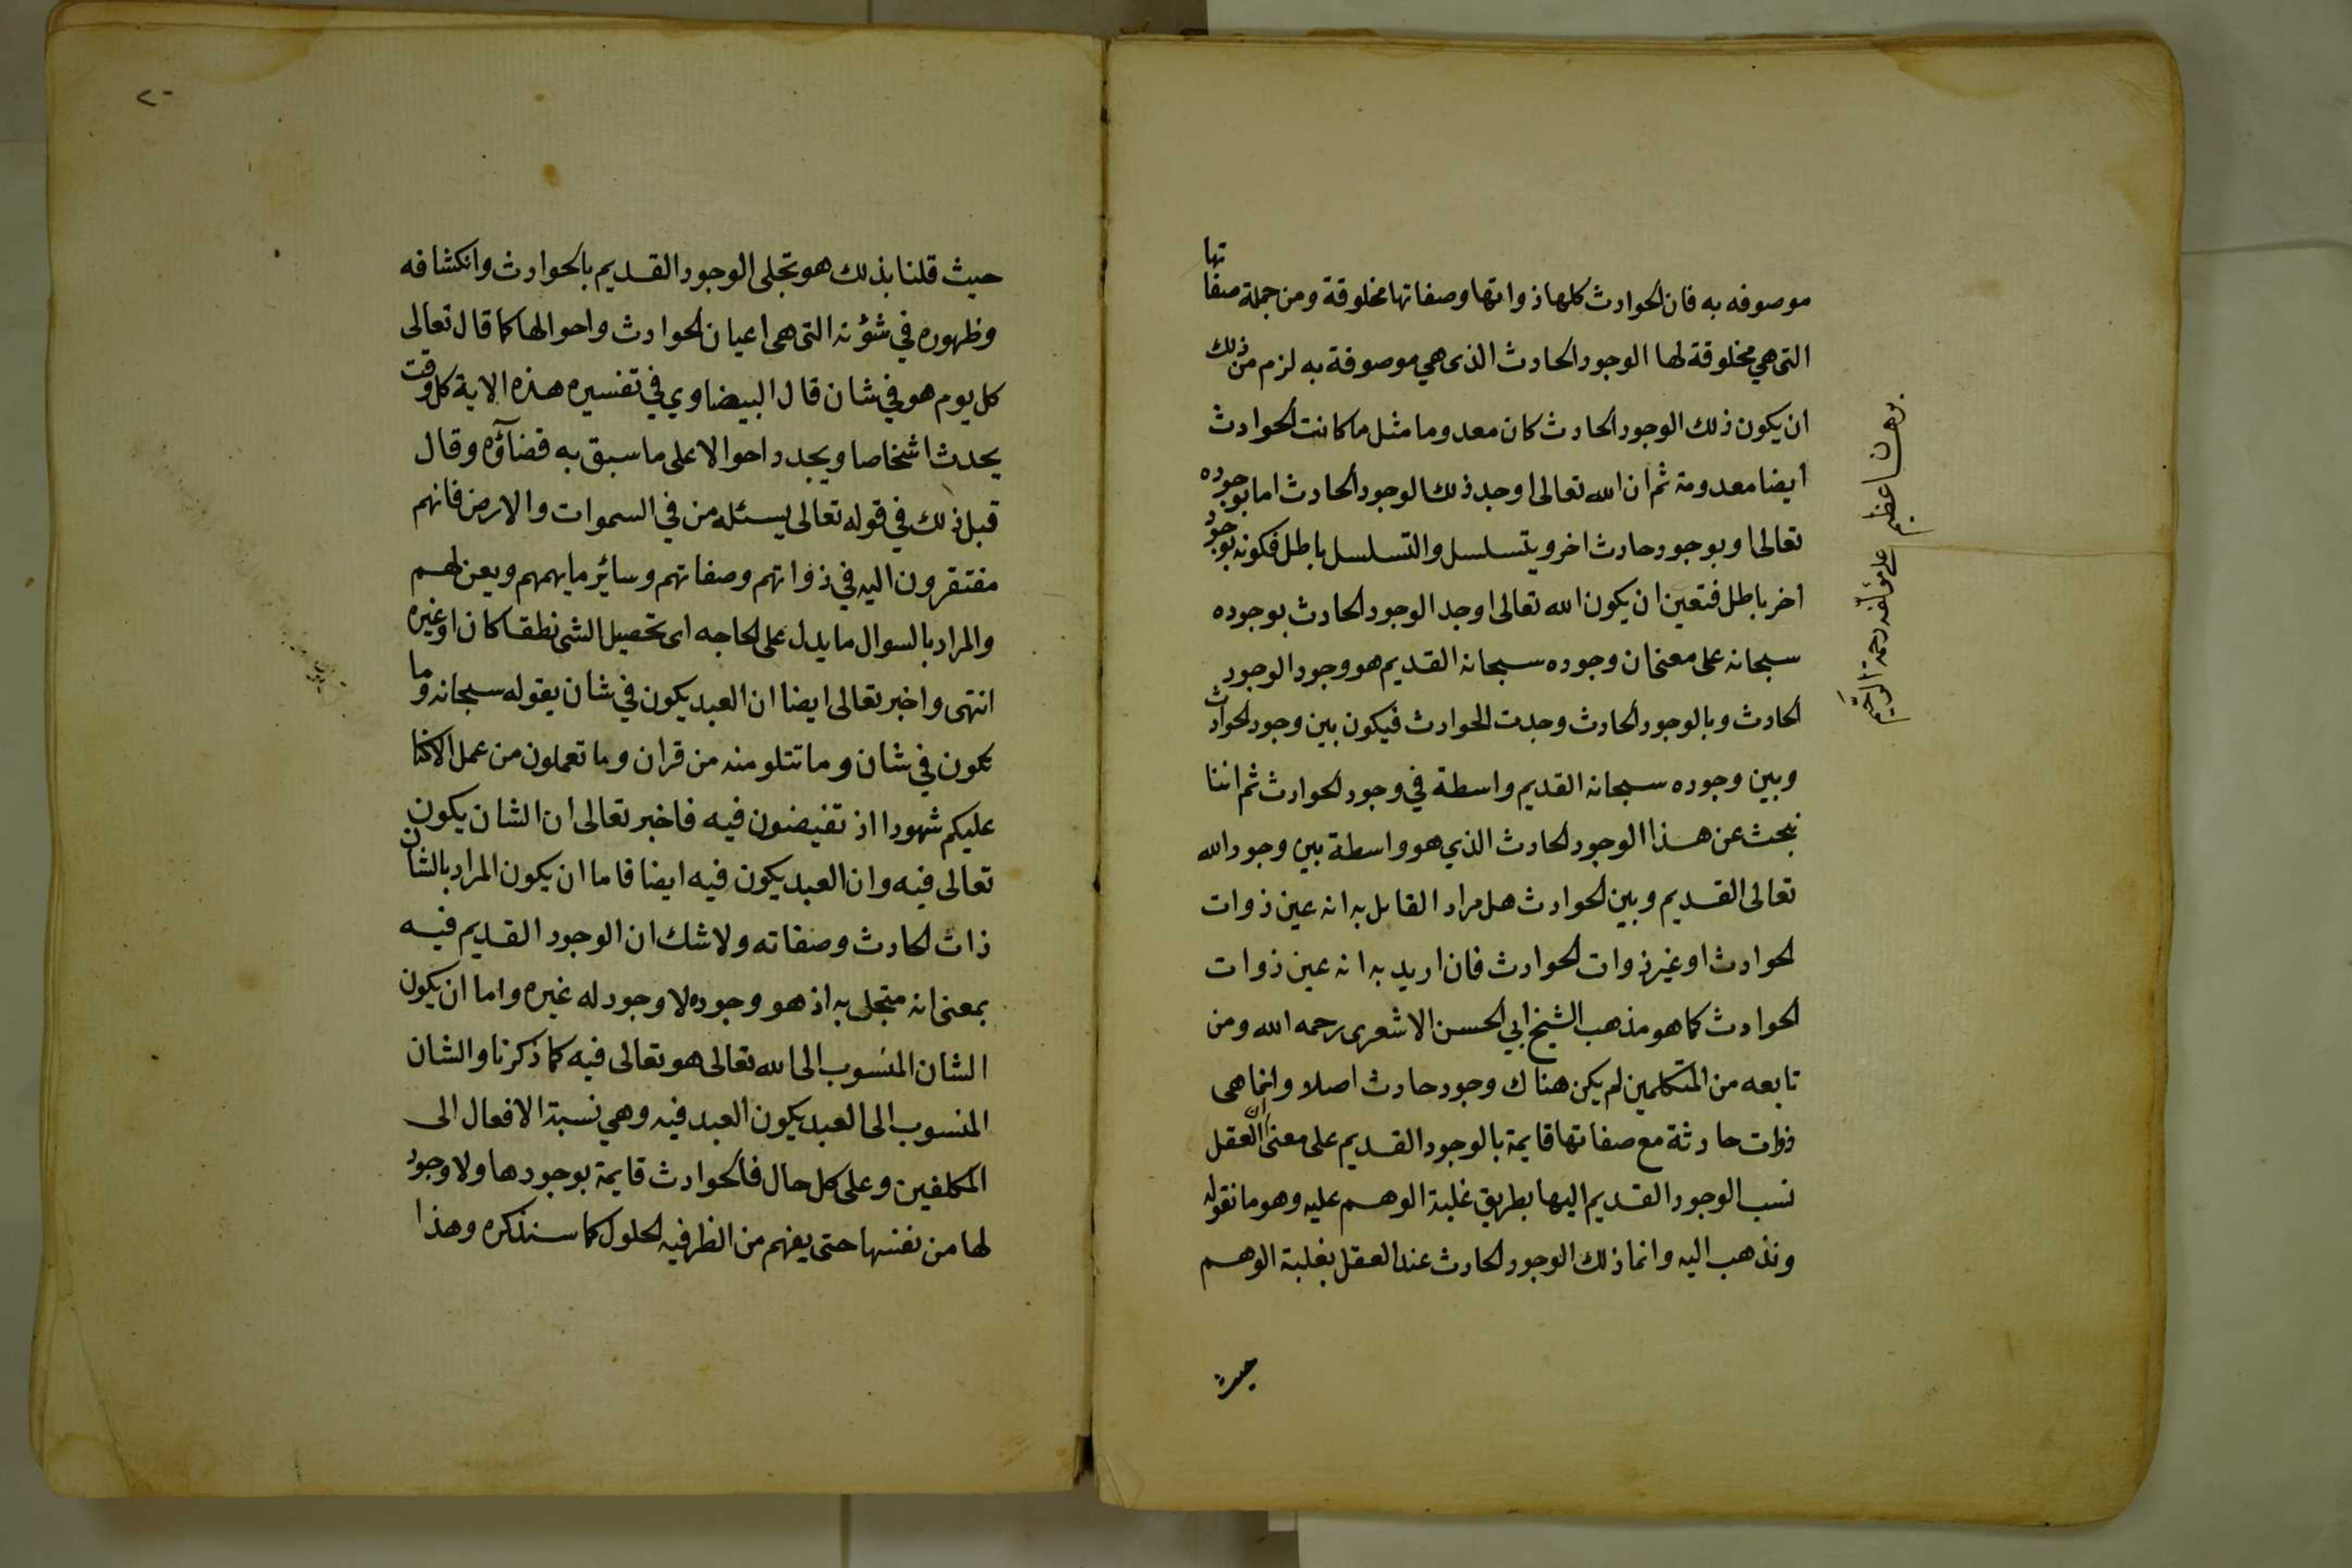 موصوفه به فان الحوادث كلها ذواتها وصفاتها مخلوقة ومن جملة صفاتها
التى هي مخلوقة لها الوجود الحادث الذى هي موصوفة به لزم من ذلك
ان يكون ذلك الوجود الحادث كان معدوما مثل ما كانت الحوادث
ايضا معدومة ثم ان الله تعالى اوجد ذلك الوجود الحادث اما بوجوده
تعالى او بوجود حادث اخر ويتسلسل والتسلسل باطل فكونه بوجود
اخر باطل فتعين ان يكون الله تعالى اوجد الوجود الحادث بوجوده
سبحانه على معنى ان وجوده سبحانه القديم هو وجود الوجود
الحادث وبالوجود الحادث وجدت الحوادث فيكون بين وجود الحوادث
وبين وجوده سبحانه القديم واسطة في وجود الحوادث ثم اننا
نبحث عن هذا الوجود الحادث الذي هو واسطة بين وجود الله
تعالى القديم وبين الحوادث هل مراد القايل به انه عين ذوات
الحوادث او غير ذوات الحوادث فان اريد به انه عين ذوات
الحوادث كما هو مذهب الشيخ ابي الحسن الاشعرى رحمه الله ومن
تابعه من المتكلمين لم يكن هناك وجود حادث اصلا وانما هى
ذوات حادثة مع صفاتها قايمة بالوجود القديم على معنى ان العقل
نسب الوجود القديم اليها بطريق غلبة الوهم عليه وهو ما نقوله
ونذهب اليه وانما ذلك الوجود الحادث عند العقل بغلبة الوهم
حيث
برهان عظيم على مؤلفه رحمة
٢٠
حيث قلنا بذلك هو تجلى الوجود القديم بالحوادث وانكشافه
وظهوره في شؤنه التى هى اعيان الحوادث واحوالها كما قال تعالى
كل يوم هو في شان قال البيضاوي في تفسيره هذه الاية كل وقت
يحدث اشخاصا ويجدد احوالا على ما سبق به قضاؤه وقال
قبل ذلك في قوله تعالى يسئله من في السموات والارض فانهم
مفتقرون اليه في ذواتهم وصفاتهم وسائر ما يهمهم ويعن لهم
والمراد بالسوال ما يدل على الحاجه اى تحصيل الشى نطقا كان او غيره
انتهى واخبر تعالى ايضا ان العبد يكون في شان بقوله سبحانه وما
تكون في شان وما تتلو منه من قران وما تعملون من عمل الا كنا
عليكم شهودا اذ تفيضون فيه فاخبر تعالى ان الشان يكون
تعالى فيه وان العبد يكون فيه ايضا فاما ان يكون المراد بالشان
ذات الحادث وصفاته ولا شك ان الوجود القديم فيه
بمعنى انه متجلى به اذ هو وجوده لا وجود له غيره واما ان يكون
الشان المنسوب الى الله تعالى هو تعالى فيه كما ذكرنا والشان
المنسوب الى العبد يكون العبد فيه وهي نسبة الافعال الى
المكلفين وعلى كل حال فالحوادث قايمة بوجودها ولا وجود
لها من نفسها حتى يفهم من الظرفيه الحلول كما سنذكره وهذا